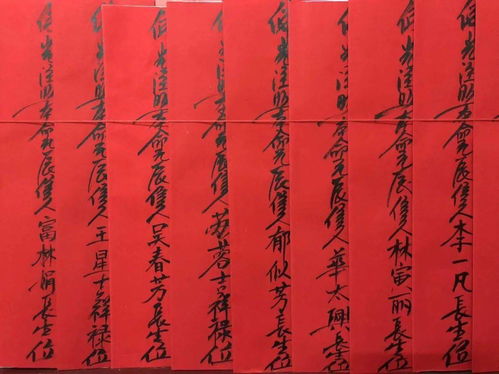 佛光注照本命元辰信人李一凡長生位
佛光注照本命元辰信人林寅丽長生位
佛光注照本命元辰信人華太興長生位
佛光注照本命元辰信人郁似芳長生位
佛光注照本命元辰信人苏蓉吉祥禄位
佛光注照本命元辰信人吴春芳長生位
佛光注照本命元辰信人王星吉祥禄位
佛光注照本命元辰信人富林娟長生位